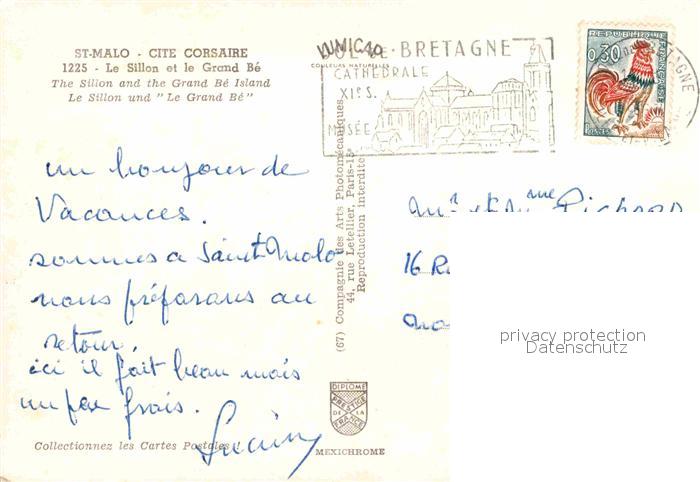 ST-MALO - CITE CORSAIRE
1225 - Le Sillon et le Grand Bé
The Sillon and the Grand Bé Island
Le Sillon und "Le Grand Bé"
LUMICAP
COULEURS NATURELLES
DOL-DE-BRETAGNE
CATHÉDRALE
XIe S.
MUSÉE
0,30
REPUBLIQUE FRANÇAISE
POSTES
un bonjour de
Vacances.
sommes a Saint Malo
nous préparons au
retour.
ici il fait beau mais
un peu frais.
Lucien
Mr et Mme Pichard
16 R
(67) Compagnie des Arts Photomécaniques
44, rue Letellier, Paris-15e
Reproduction interdite
privacy protection
Datenschutz
DIPLOME
PRESTIGE
DE LA
FRANCE
Collectionnez les Cartes Postales !
MEXICHROME